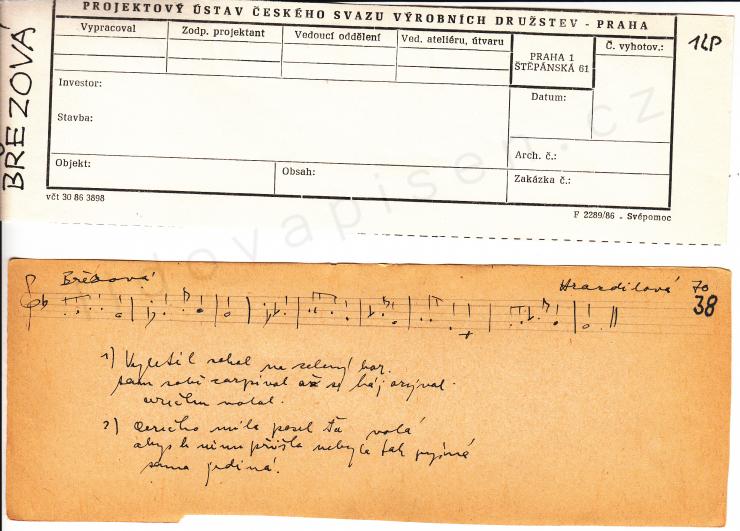 PROJEKTOVÝ ÚSTAV ČESKÉHO SVAZU VÝROBNÍCH DRUŽSTEV - PRAHA
Vypracoval Zodp. projektant Vedoucí oddělení Ved. ateliéru, útvaru PRAHA 1 ŠTĚPÁNSKÁ 61 Č. vyhotov.:
1LP
BŘEZOVÁ
Investor:
Datum:
Stavba:
Arch. č.:
Objekt: Obsah: Zakázka č.:
včt 30 86 3898 F 2289/86 - Svépomoc
Břěsová Hrazdilová 70
38
1) Vyletěl sokol na zelený hor.
sám sobě zazpíval až se háj ozýval.
volal.
2) milá posel ťa volá
abys k nimu přišla nebyla tak pyšná
sama jediná.